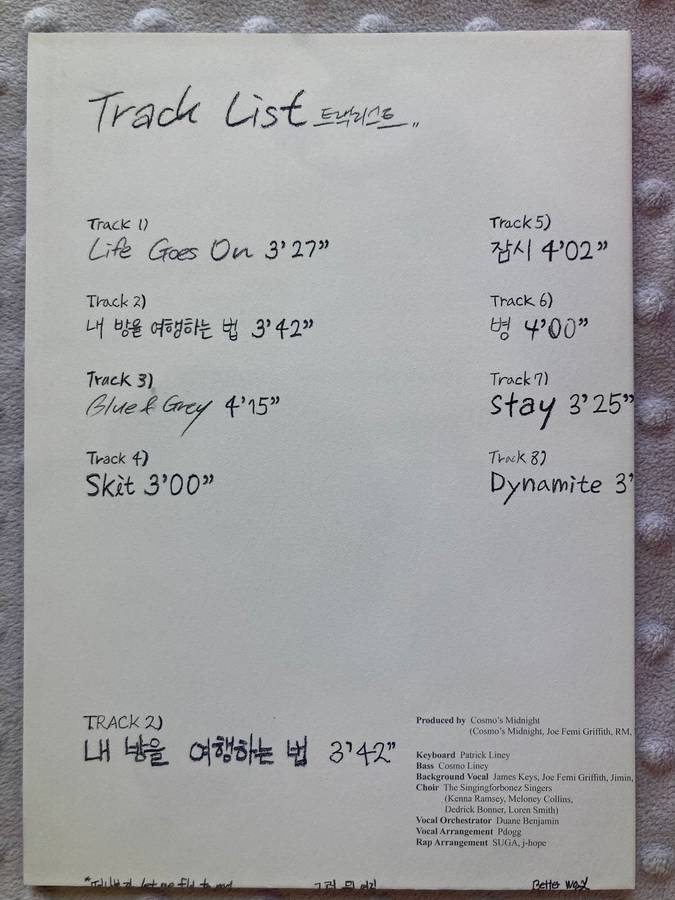 Track List 트랙리스트
Track 1)
Life Goes On 3'27"
Track 2)
내 방을 여행하는 법 3'42"
Track 3)
Blue & Grey 4'15"
Track 4)
Skit 3'00"
Track 5)
잠시 4'02"
Track 6)
병 4'00"
Track 7)
stay 3'25"
Track 8)
Dynamite 3'
TRACK 2)
내 방을 여행하는 법 3'42"
Produced by Cosmo's Midnight
(Cosmo's Midnight, Joe Femi Griffith, RM,
Keyboard Patrick Liney
Bass Cosmo Liney
Background Vocal James Keys, Joe Femi Griffith, Jimin,
Choir The Singingforbonez Singers
(Kenna Ramsey, Meloney Collins,
Dedrick Bonner, Loren Smith)
Vocal Orchestrator Duane Benjamin
Vocal Arrangement Pdogg
Rap Arrangement SUGA, j-hope
let me fly to my
Better way